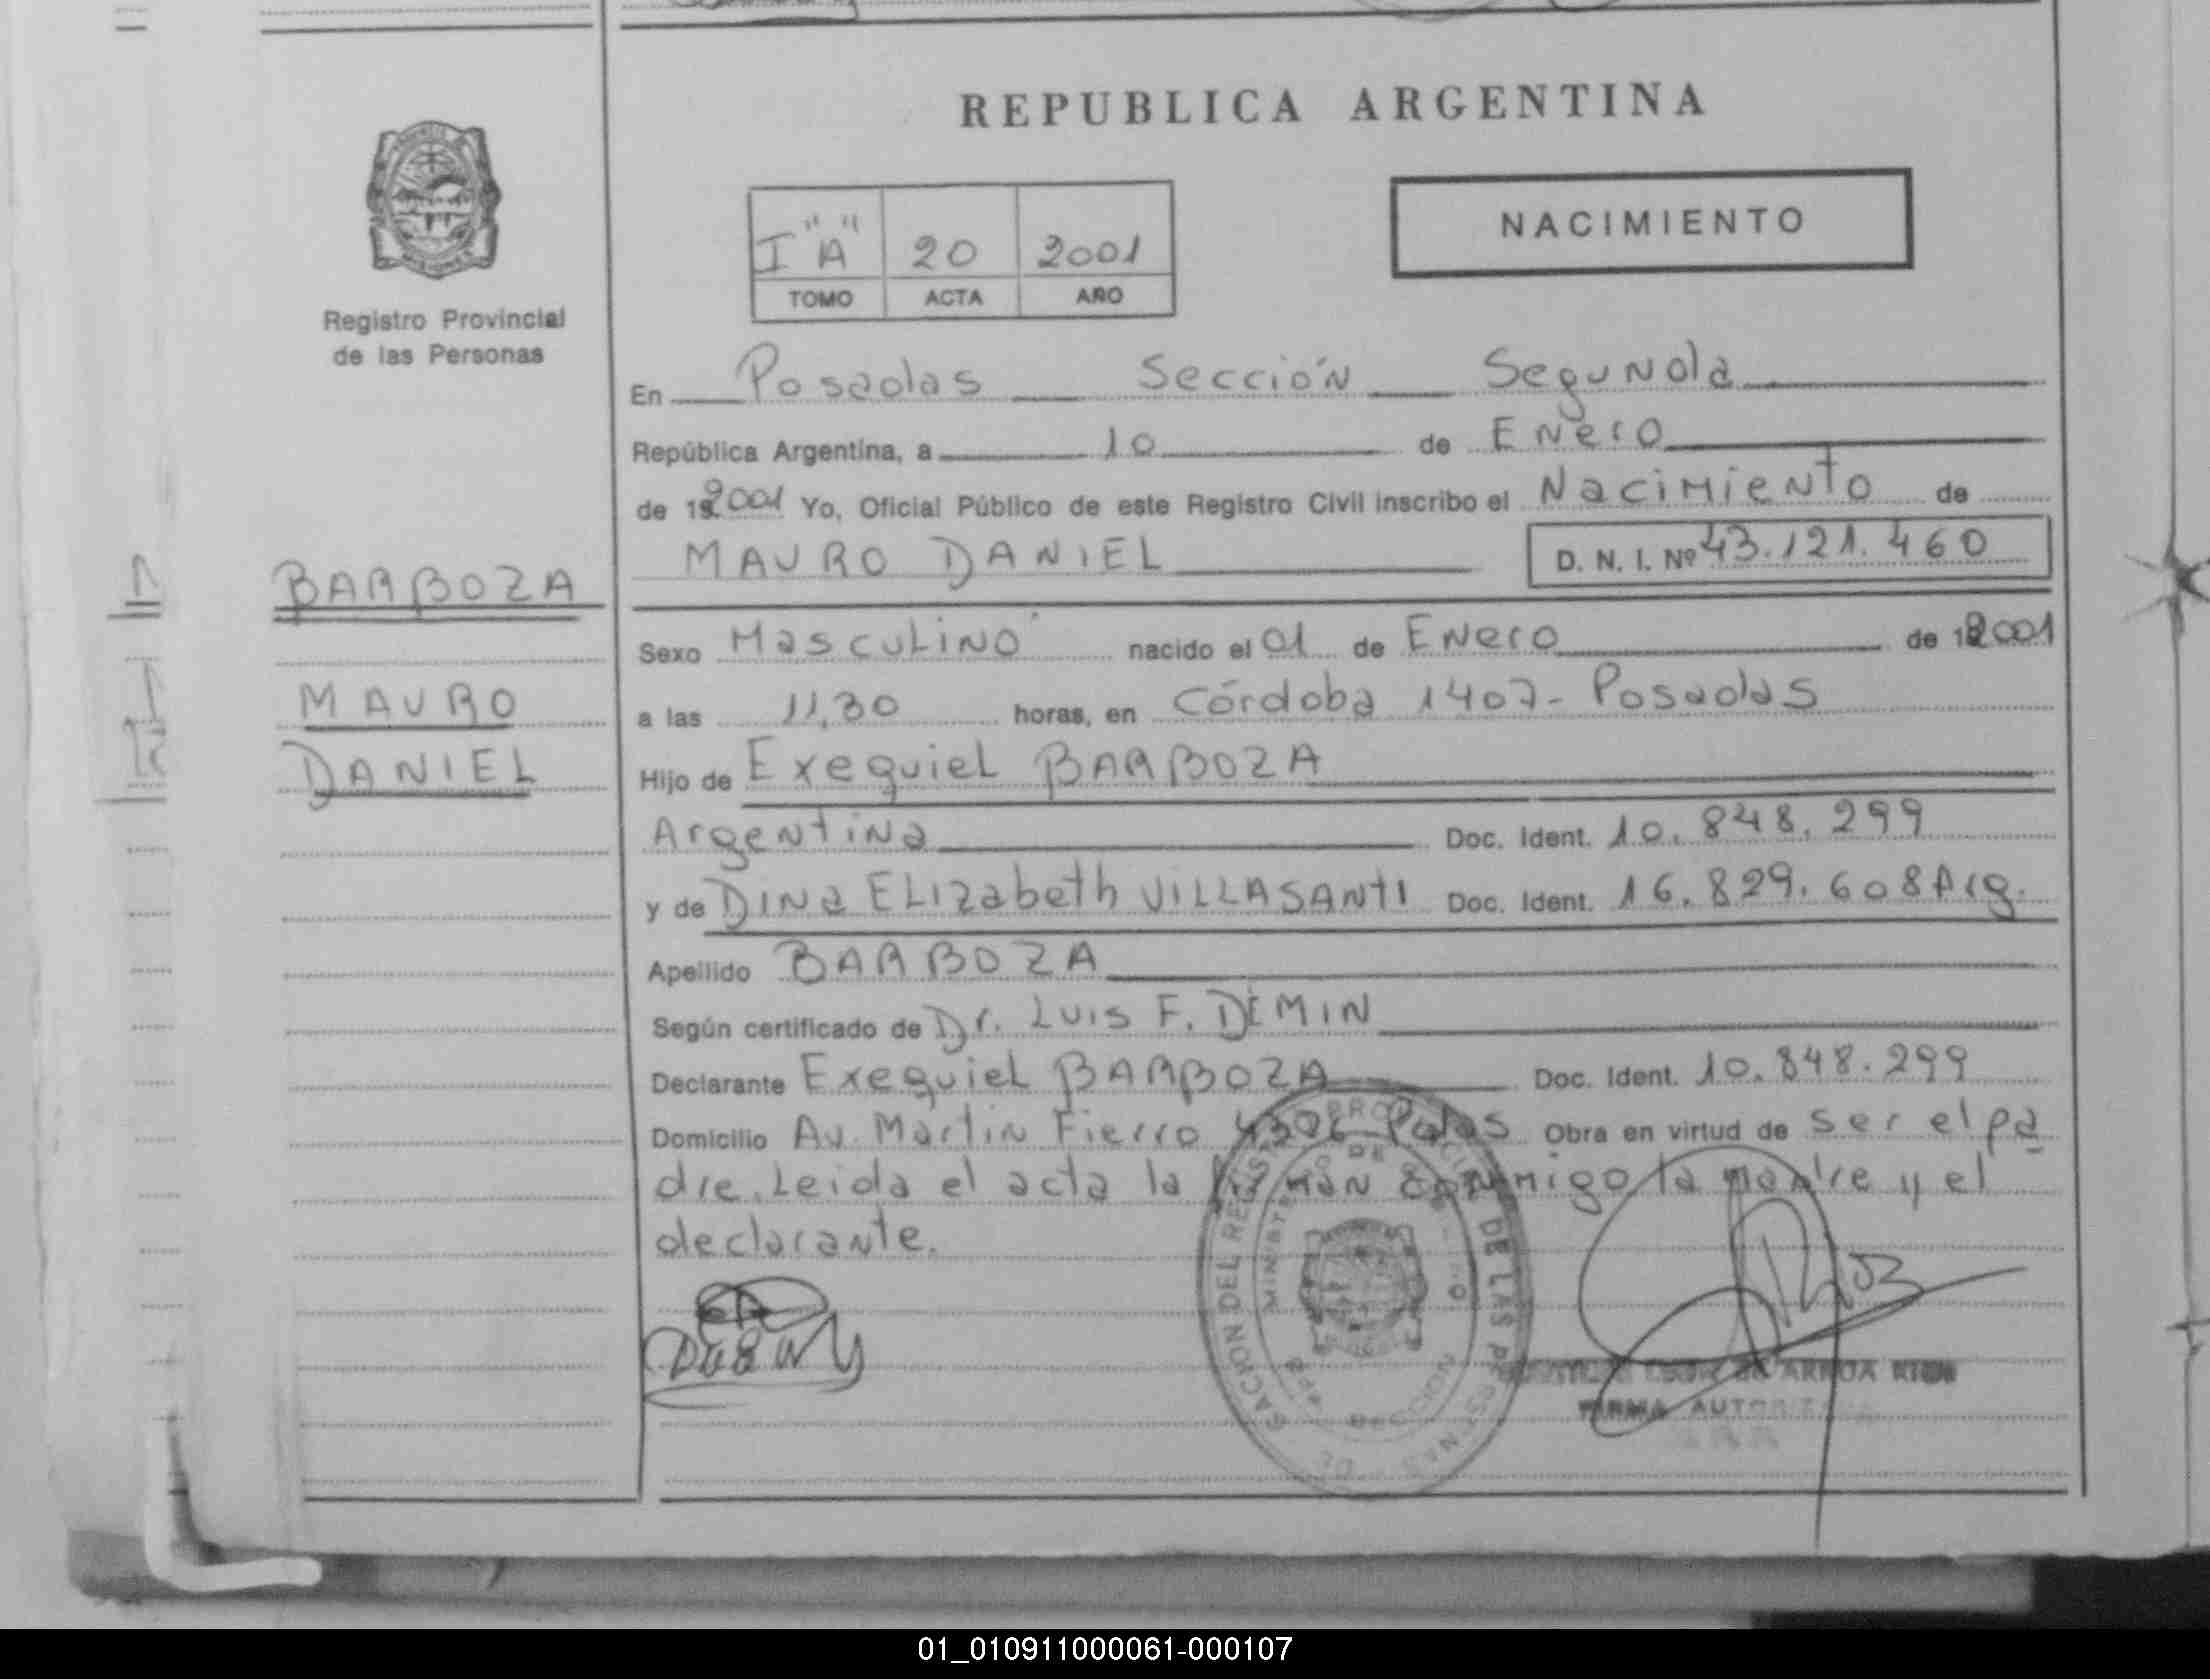 REPUBLICA ARGENTINA
I "A" 20 2001
TOMO ACTA AÑO
NACIMIENTO
Registro Provincial
de las Personas
En Posadas Sección Segunda
República Argentina, a 10 de Enero
de 192001 Yo, Oficial Público de este Registro Civil inscribo el Nacimiento de
MAURO DANIEL D. N. I. Nº 43.121.460
BARBOZA
MAURO
DANIEL
Sexo Masculino nacido el 01 de Enero de 192001
a las 11,30 horas, en Córdoba 1407- Posadas
Hijo de Exequiel BARBOZA
Argentina Doc. Ident. 10.848.299
y de DINA ELIZabeth VILLASANTI Doc. Ident. 16.829.608 Arg.
Apellido BARBOZA
Según certificado de Dr. Luis F. DEMIN
Declarante Exequiel BARBOZA Doc. Ident. 10.848.299
Domicilio Av. Martin Fierro Obra en virtud de ser el pa
dre. Leida el acta la firman conmigo la madre y el
declarante.
DE LAS PERSONAS
FIRMA AUTORIZADA
01_010911000061-000107